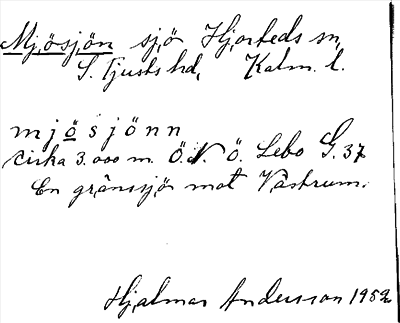 Mjösjön sjö Hjorteds sn,
S. Tjusts hd, Kalm. l.
mjösjönn
cirka 3.000 m. Ö.N.Ö. Lebo G. 37
En gränssjö mot Västrum.
Hjalmar Andersson 1952